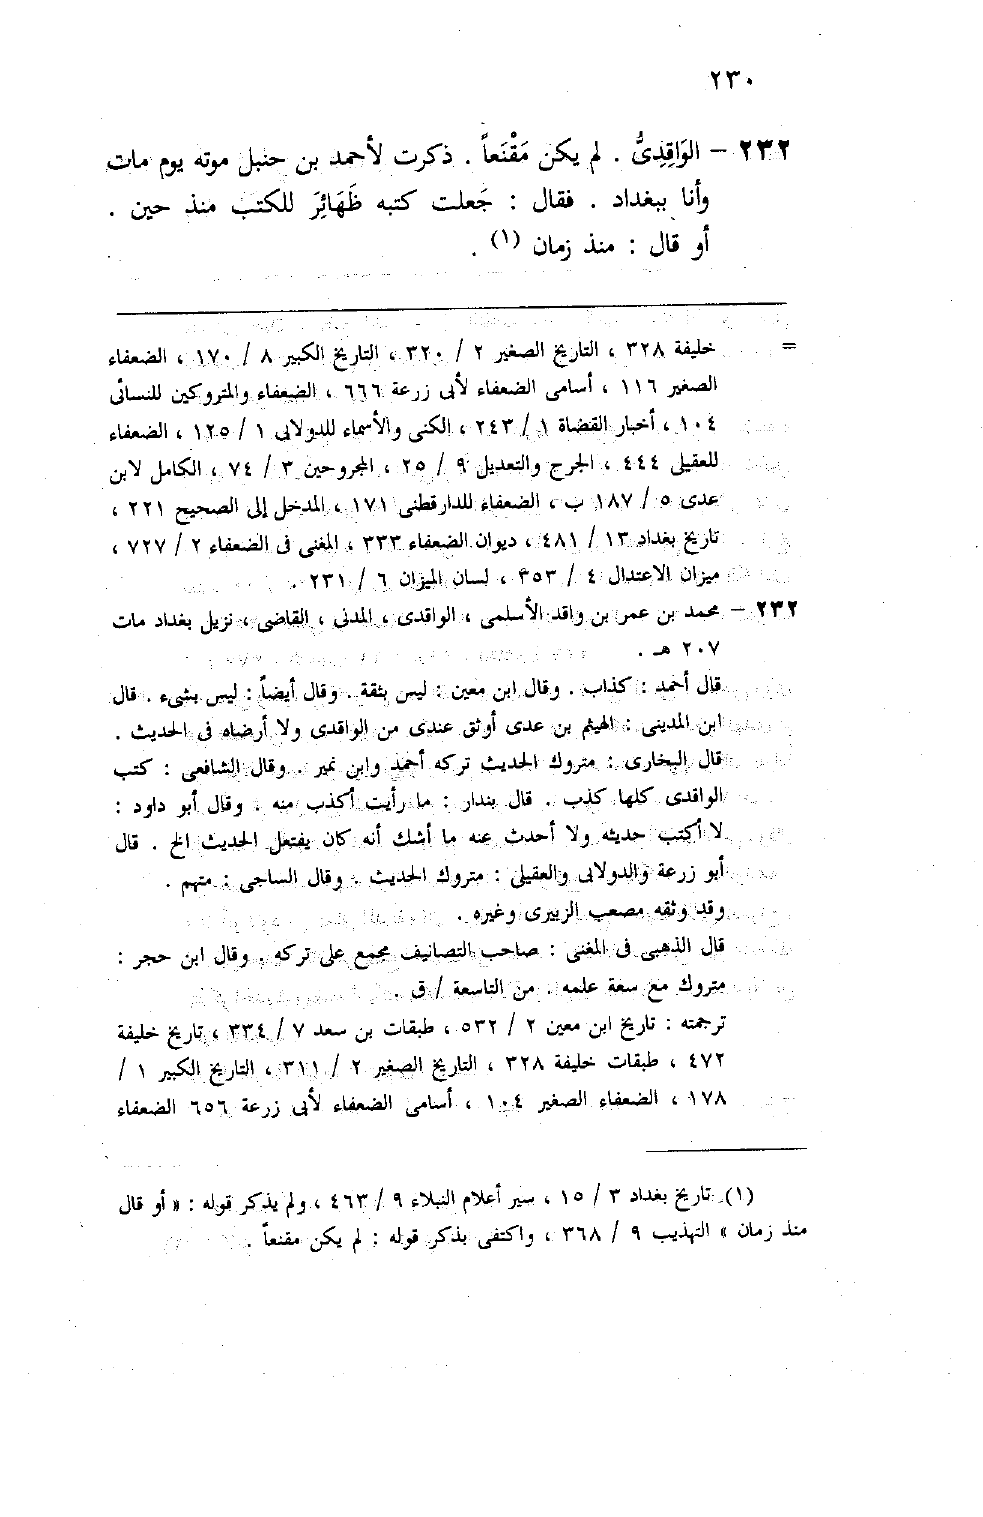 ٢٣٠
٢٣٢ – الوَاقِدِىُّ . لم يكن مَقْنَعاً . ذكرت لأحمد بن حنبل موته يوم مات
وأنا ببغداد . فقال : جَعلت كتبه ظَهَائِرَ للكتب منذ حين .
أو قال : منذ زمان (١) .
= خليفة ٣٢٨ ، التاريخ الصغير ٢ / ٣٢٠ ، التاريخ الكبير ٨ / ١٧٠ ، الضعفاء
الصغير ١١٦ ، أسامى الضعفاء لأبى زرعة ٦٦٦ ، الضعفاء والمتروكين للنسائى
١٠٤ ، أخبار القضاة ١ / ٢٤٣ ، الكنى والأسماء للدولابى ١ / ١٢٥ ، الضعفاء
للعقيلى ٤٤٤ ، الجرح والتعديل ٩ / ٢٥ ، المجروحين ٣ / ٧٤ ، الكامل لابن
عدى ٥ / ١٨٧ ب ، الضعفاء للدارقطنى ١٧١ ، المدخل إلى الصحيح ٢٢١ ،
تاريخ بغداد ١٣ / ٤٨١ ، ديوان الضعفاء ٣٣٣ ، المغنى فى الضعفاء ٢ / ٧٢٧ ،
ميزان الاعتدال ٤ / ٣٥٣ ، لسان الميزان ٦ / ٢٣١ .
٢٣٢ – محمد بن عمر بن واقد الأسلمى ، الواقدى ، المدنى ، القاضى ، نزيل بغداد مات
٢٠٧ هـ .
قال أحمد : كذاب . وقال ابن معين : ليس بثقة . وقال أيضاً : ليس بشىء . قال
ابن المدينى : الهيثم بن عدى أوثق عندى من الواقدى ولا أرضاه فى الحديث .
قال البخارى : متروك الحديث تركه أحمد وابن نمير . وقال الشافعى : كتب
الواقدى كلها كذب . قال بندار : ما رأيت أكذب منه . وقال أبو داود :
لا أكتب حديثه ولا أحدث عنه ما أشك أنه كان يفتعل الحديث الخ . قال
أبو زرعة والدولابى والعقيلى : متروك الحديث . وقال الساجى : متهم .
وقد وثقه مصعب الزبيرى وغيره .
قال الذهبى فى المغنى : صاحب التصانيف مجمع على تركه . وقال ابن حجر :
متروك مع سعة علمه . من التاسعة / ق .
ترجمته : تاريخ ابن معين ٢ / ٥٣٢ ، طبقات بن سعد ٧ / ٣٣٤ ، تاريخ خليفة
٤٧٢ ، طبقات خليفة ٣٢٨ ، التاريخ الصغير ٢ / ٣١١ ، التاريخ الكبير ١ /
١٧٨ ، الضعفاء الصغير ١٠٤ ، أسامى الضعفاء لأبى زرعة ٦٥٦ الضعفاء
(١) تاريخ بغداد ٣ / ١٥ ، سير أعلام النبلاء ٩ / ٤٦٣ ، ولم يذكر قوله : « أو قال
منذ زمان » التهذيب ٩ / ٣٦٨ ، واكتفى بذكر قوله : لم يكن مقنعاً .